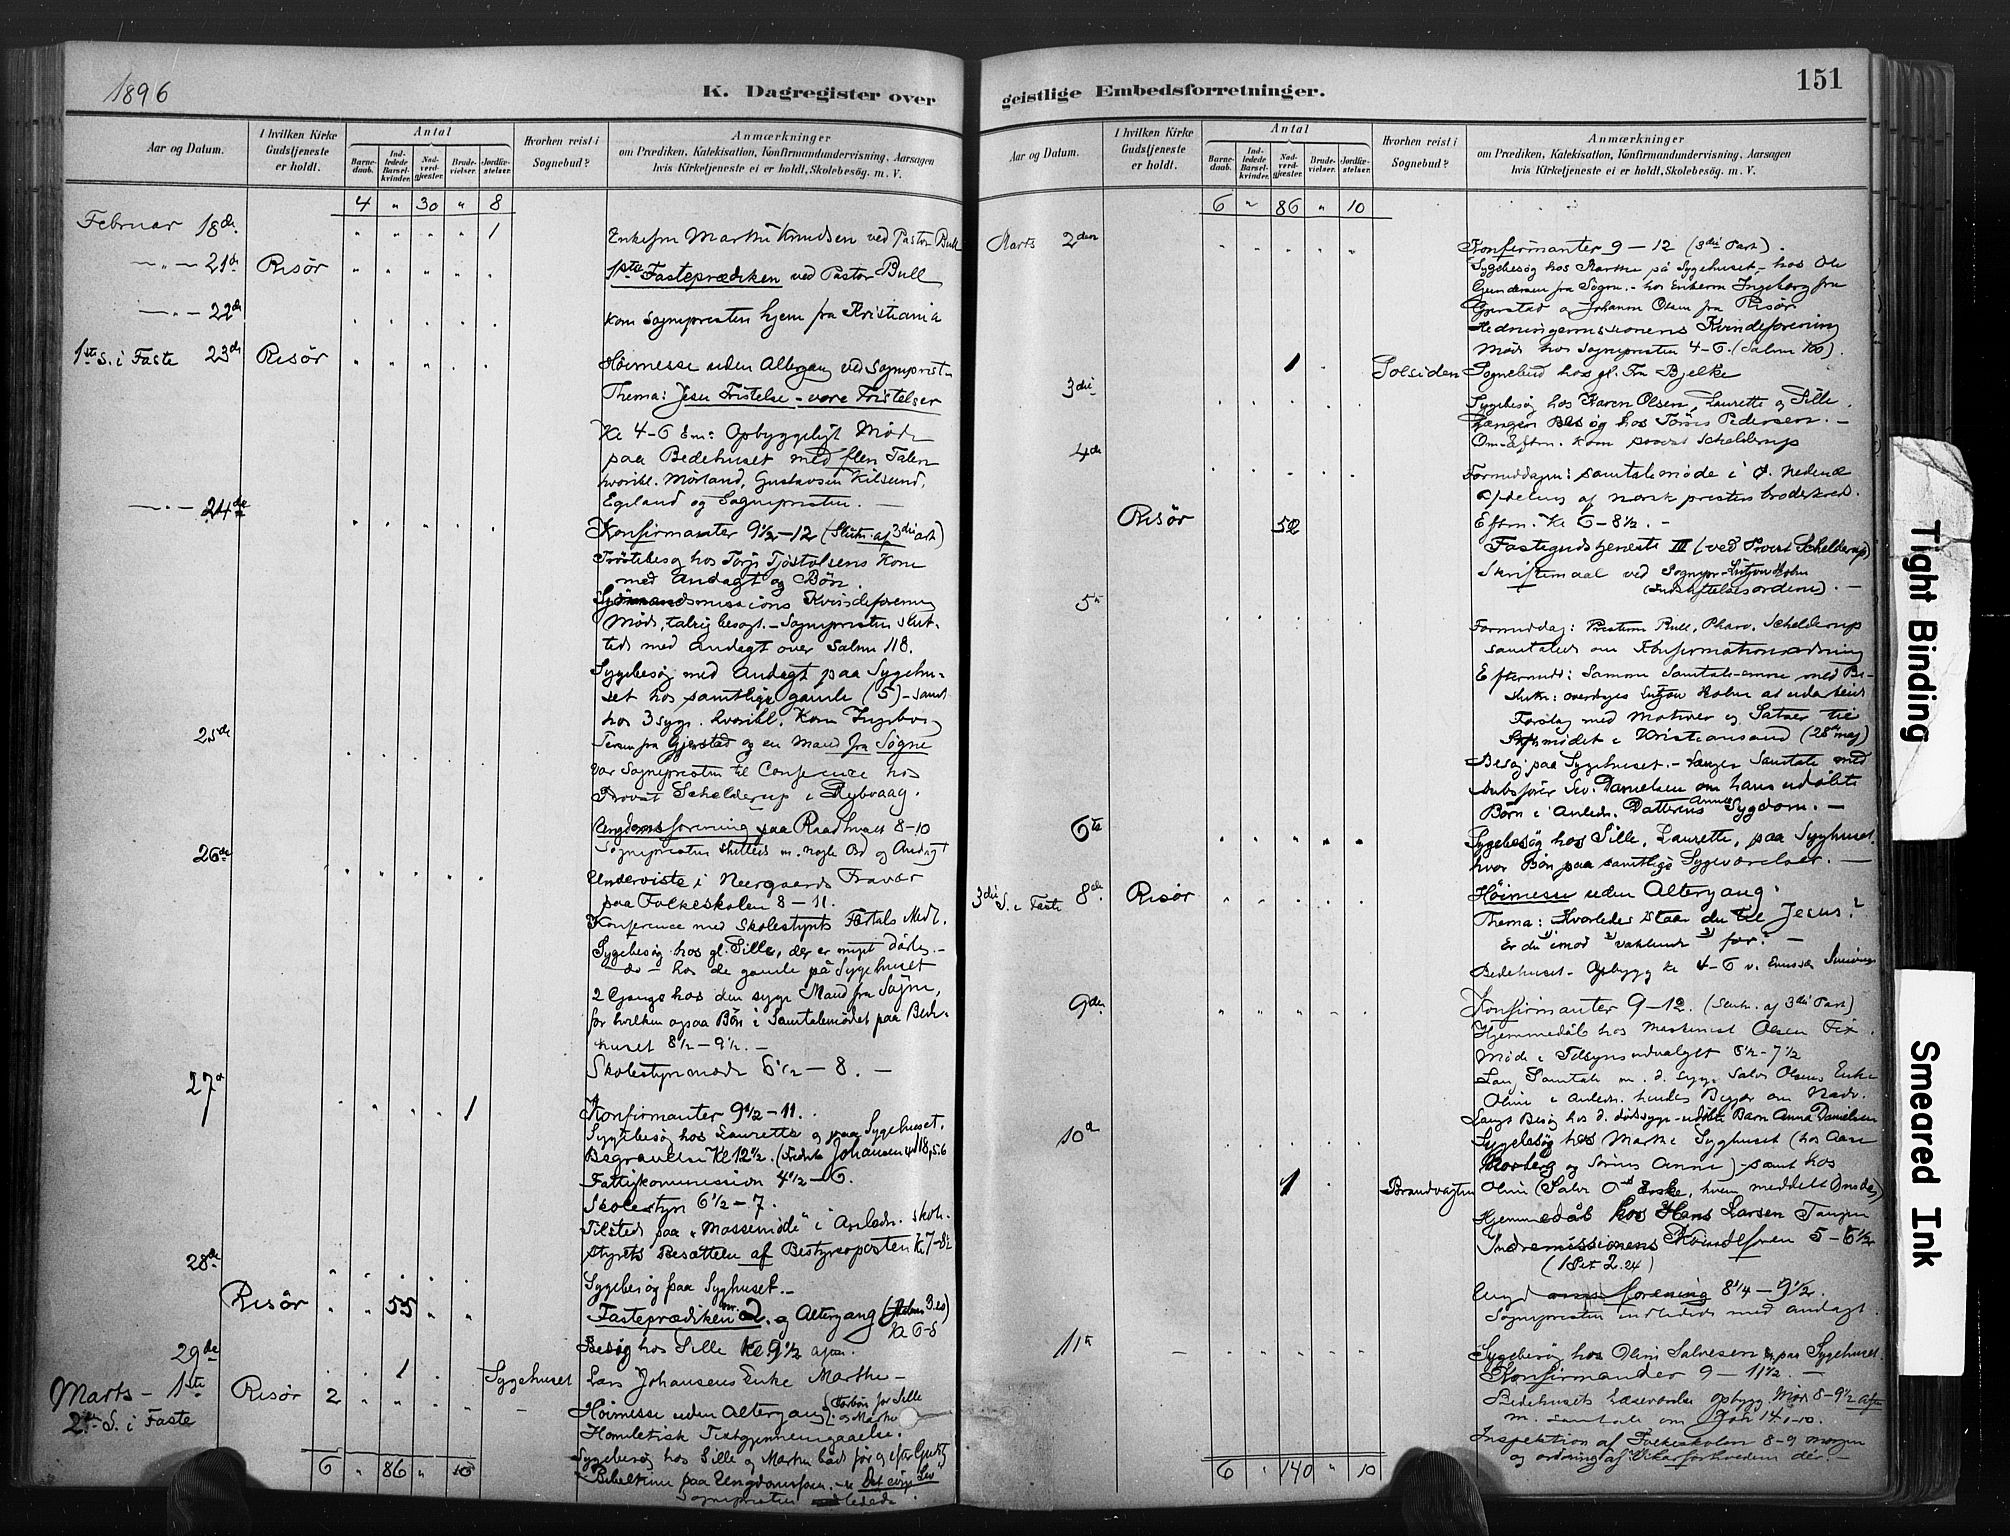 1896
K. Dagregister over
Aar og Datum.
I hvilken Kirke Gudstjeneste er holdt.
Antal
Barnedaab.
Indledede Barselkvinder.
Nadverdgjæster.
Brudevielser.
Jordfæstelser.
Hvorhen reist i Sognebud?
Anmærkninger
om Prædiken, Katekisation, Konfirmandundervisning, Aarsagen
hvis Kirketjeneste ei er holdt, Skolebesög. m. V.
4 " 30 " 8
Februar 18de 1 Enkefru Marthe Knudsen ved Pastor Bull
— " — 21de Risör 1ste Fasteprædiken ved Pastor Bull
— " — 22de kom Sognepresten hjem fra Kristiania
1ste S. i Faste 23de Risör Höimesse uden Altergang ved Sognepresten
Thema: Jesu Fristelse - vore Fristelser
Kl 4-6 Em: Opbyggeligt Möde
paa Bedehuset med flere Talere
hvoribl. Mörland, Gustavsen Kilsund,
Egeland og Sognepresten. —
— " — 24de Konfirmanter 9½-12 (Slutn. af 3die Part)
Tröstebesög hos Törjs Tjöstolsens Kone
med Andagt og Bön.
Sjömandsmissions Kvindeforening
Möde, talrig besögt. - Sognepresten slut-
tede med Andagt over Salme 118.
Sygebesög med Andagt paa Sygehu-
set hos samtlige gamle (5) - samt
hos 3 syge. hvoribl. Kone Ingeborg
fra Gjerstad og en Mand fra Sögne
25de Var Sognepresten til Conference hos
Provst Schelderup i Dybvaag.
Ungdomsforening paa Raadhuset 8-10
Sognepresten sluttede m. nogle Ord og Andagt
26de Underviste i Neergaards Fravær
paa Folkeskolen 8-11.
Konference med Skolestyrets
Sygebesög hos gl. Sille, der er meget daarlig. -
— do — hos de gamle på Sygehuset
2 Gange hos den syge Mand fra Sögne,
for hvilken ogsaa Bön i Samtalemödet paa Bede-
huset 8½-9½. —
Skolestyremöde 6½-8. —
27de 1 Konfirmanter 9½-11.
Sygebesög hos Laurette og paa Sygehuset.
Begravelse Kl 12½. Johansen
Fattigkommission 4½-6.
Skolestyre 6½-7.
Tilstede paa "Massemöde" i Anledn. Skole-
styrets Besættelse af Bestyrerposten Kl 7-8½
28de Sygebesög paa Syghuset. -
Risör 55 Fasteprædiken nr. 2. og Altergang
Kl 6-8
29de Besög hos Sille Kl. 9½ aften.
1 Sygehuset Lars Johansens Enke Marthe -
Marts - 1ste Risör 2 Höimesse uden Altergang (Forbön for Sille
2den S. i Faste og Marthe
Homiletisk Textgjennemgaaelse.
Sygebesög hos Sille og Marthe både för og efter Gudstj.
Bibeltime paa Ungdomsforen. — Det evige Liv
Sognepresten
6 " 86 " 10
geistlige Embedsforretninger.
151
Aar og Datum.
I hvilken Kirke Gudstjeneste er holdt.
Antal
Barnedaab.
Indledede Barselkvinder.
Nadverdgjæster.
Brudevielser.
Jordfæstelser.
Hvorhen reist i Sognebud?
Anmærkninger
om Prædiken, Katekisation, Konfirmandundervisning, Aarsagen
hvis Kirketjeneste ei er holdt, Skolebesög. m. V.
6 " 86 " 10
Marts 2den Konfirmanter 9-12 (3die Part).
Sygebesög hos Marthe på Sygehuset - hos Ole
Gundersen fra Sögne. - hos Enkerne Ingeborg fra
Gjerstad og Johanne Olsen fra Risör
Hedningemissionens Kvindeforening
Möde hos Sognepresten 4-6. (Salme 100).
1 Solsiden Sognebud hos gl. Fru Bjelke
3die Sygebesög hos Karen Olsen, Laurette og Sille.
Længere Besög hos Törris Pedersen. —
Om Eftm. kom provst Schelderup
4de Formiddagen: samtalemöde i Ö. Nedenæs
Afdeling af norsk presters broderkred.
Risör 52 Eftm. Kl 6-8½. -
Fastegudstjeneste III (ved Provst Schelderup)
Skriftemaal ved Sognepr. Lützow Holm
(Indstiftelsesordene). —
5te Formiddag: Presterne Bull, Pharo, Schelderup
samtalede om Konfirmationsordning
Eftermidd: Samme Samtale-emne med Be-
slutn: overdroges Lützow Holm at udarbeide
Forslag med Motiver og Satser til
mödet i Kristiansand (28de Maj)
Besög paa Sygehuset. - Længere Samtale med
Danielsen om hans udöbte
Börn i Anledn. Datterens Annas Sygdom. —
6te Sygebesög hos Sille, Laurette, paa Syghuset.
hvor Bön paa samtlige Sygeværelser. —
3die S. i Faste 8de Risör Höimesse uden Altergang.
Thema: Hvorledes staar du til Jesus?
Er du 1) imod 2) vaklende 3) for? —
Bedehuset - Opbygg Kl 4-6 v.
9de Konfirmanter 9-12. (Slutn. af 3die Part)
Hjemmedåb hos Maskinist Olsen Fix.
Möde i Tilsynsudvalget 6½-7½
Lang Samtale m. d. syge Salve Olsens Enke
Oline i Anledn. hendes Begjær om Nadv.
Langt Besög hos d. dödssyge udöbte Barn Anna Danielsen
10de Sygebesög hos Marthe Syghuset (hos Aase
og Sörine Anne) - samt hos
1 Brandvagten Oline (Salve Os Enke, hvem meddelt Önsde)
Hjemmedåb hos Hans Larsen Tangen
Indremissionens Kvindeforen 5-6½
(1 Pet 2.24)
Ungd forening 8¼-9½.
Sognepresten indledede med andagt.
11te Sygebesög hos Oline Salvesen & paa Sygehuset.
Konfirmander 9-11½. —
Bedehusets Læseværelse opbygg. Möde 8-9½ aften
m. samtale om Joh 14,1-10.
Inspektion af Folkeskolen 8-9 morgen
og ordning af Vikarforholdene der. —
6 " 140 " 10
Tight Binding
Smeared Ink